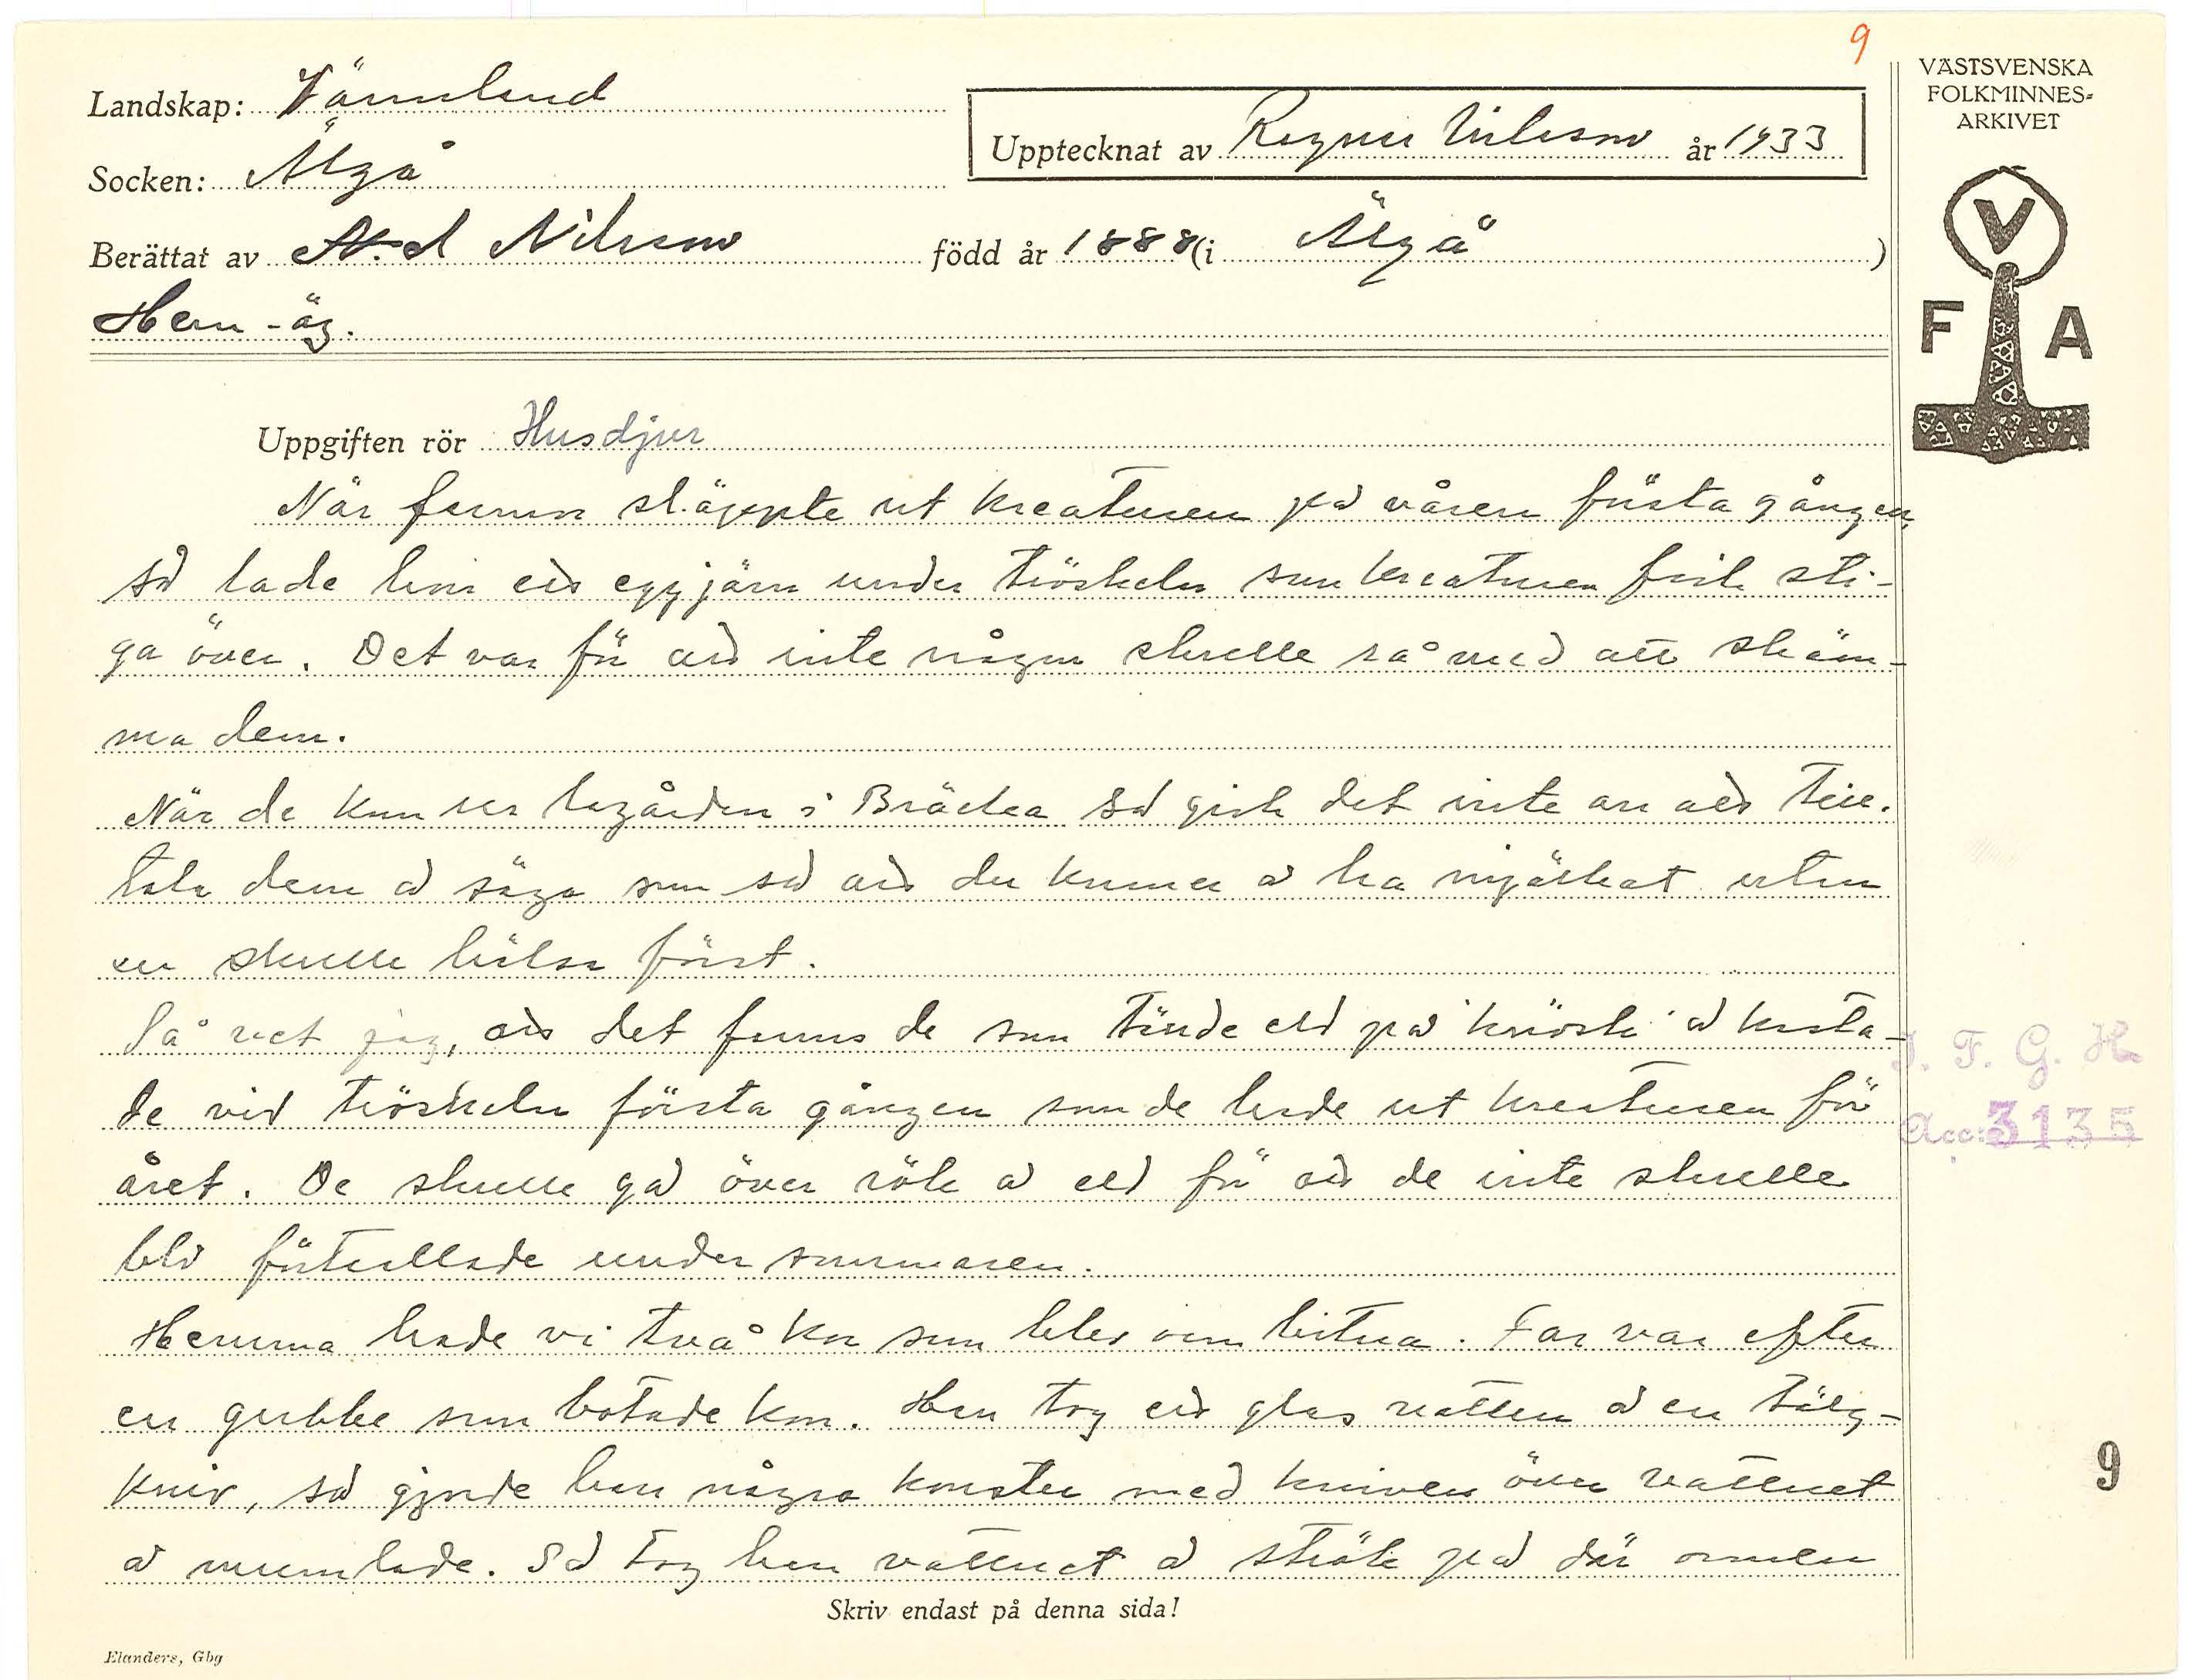 9
Landskap: Värmland
VÄSTSVENSKA
FOLKMINNES-
ARKIVET
Upptecknat av Ragnar Nilsson år 1933
Socken: Älgå
Berättat av Nilsson född år 1888 (i Älgå)
Hem-äg.
V
F A
Uppgiften rör Husdjur
När farmor släppte ut kreaturen på våren första gången,
så lade hon ett eggjärn under tröskeln som kreaturen fick sti-
ga över. Det var för att inte någon skulle rå med att skäm-
ma dem.
När de kom ur lagården i Bräcka så gick det inte an att till-
tala dem å säga som så att du kommer å ha mjölkat utan
en skulle hälsa först.
Så vet jag, att det fanns de som tände eld på knöske å kasta-
de vid tröskeln första gången som de hade ut kreaturen för
året. De skulle gå över rök å eld för att de inte skulle
bli förtrollade under sommaren.
Hemma hade vi två kor som blev orm bitna. Far var efter
en gubbe som botade kon. Han tog ett glas vatten å en tälg-
kniv, så gjorde han några konster med kniven över vattnet
å mumlade. Så tog han vattnet å strök på där ormen
I. F. G. H.
Acc: 3135
9
Skriv endast på denna sida!
Elanders, Gbg